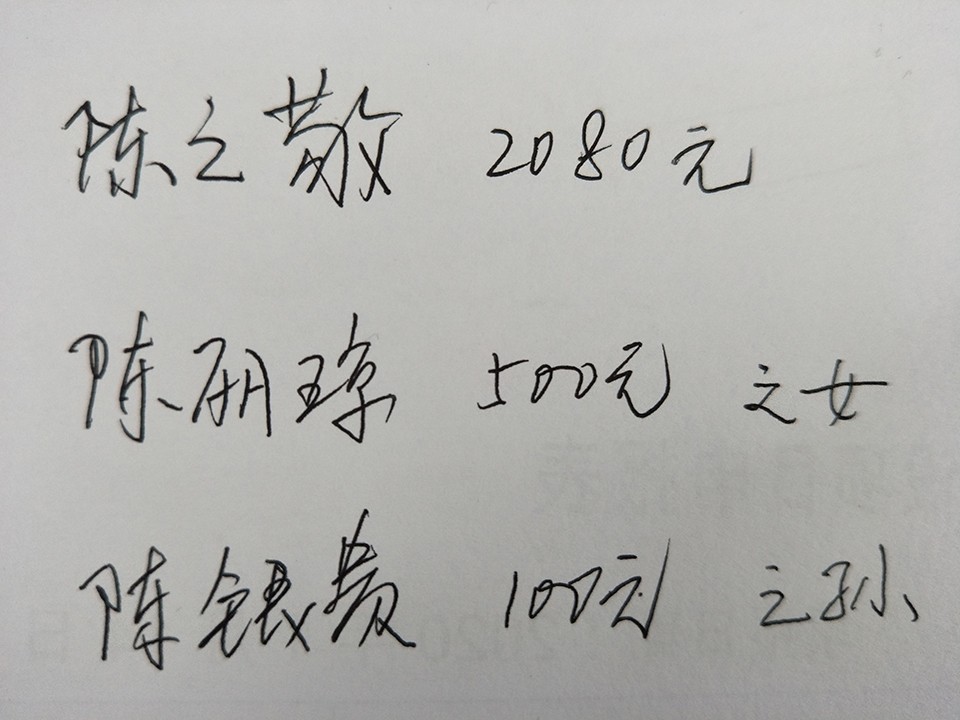 陈之敬 2080元
陈丽琼 500元 之女
陈银贵 100元 之孙